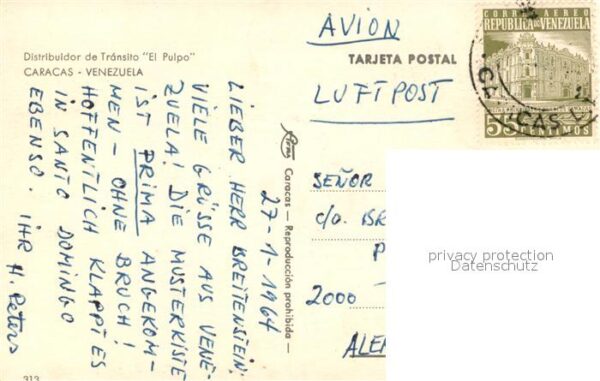 Distribuidor de Tránsito "El Pulpo"
CARACAS - VENEZUELA
27-1-1964
LIEBER HERR BREITENSTEIN:
VIELE GRÜSSE AUS VENE-
ZUELA! DIE MUSTERKISTE
IST PRIMA ANGEKOM-
MEN - OHNE BRUCH!
HOFFENTLICH KLAPPT ES
IN SANTO DOMINGO
EBENSO. IHR H. Peters
313
Caracas — Reproducción prohibida —
AVION
TARJETA POSTAL
LUFTPOST
CORREO AEREO
REPUBLICA DE VENEZUELA
55 CENTIMOS
SEÑOR
c/o. BR
P
2000
ALE
privacy protection
Datenschutz